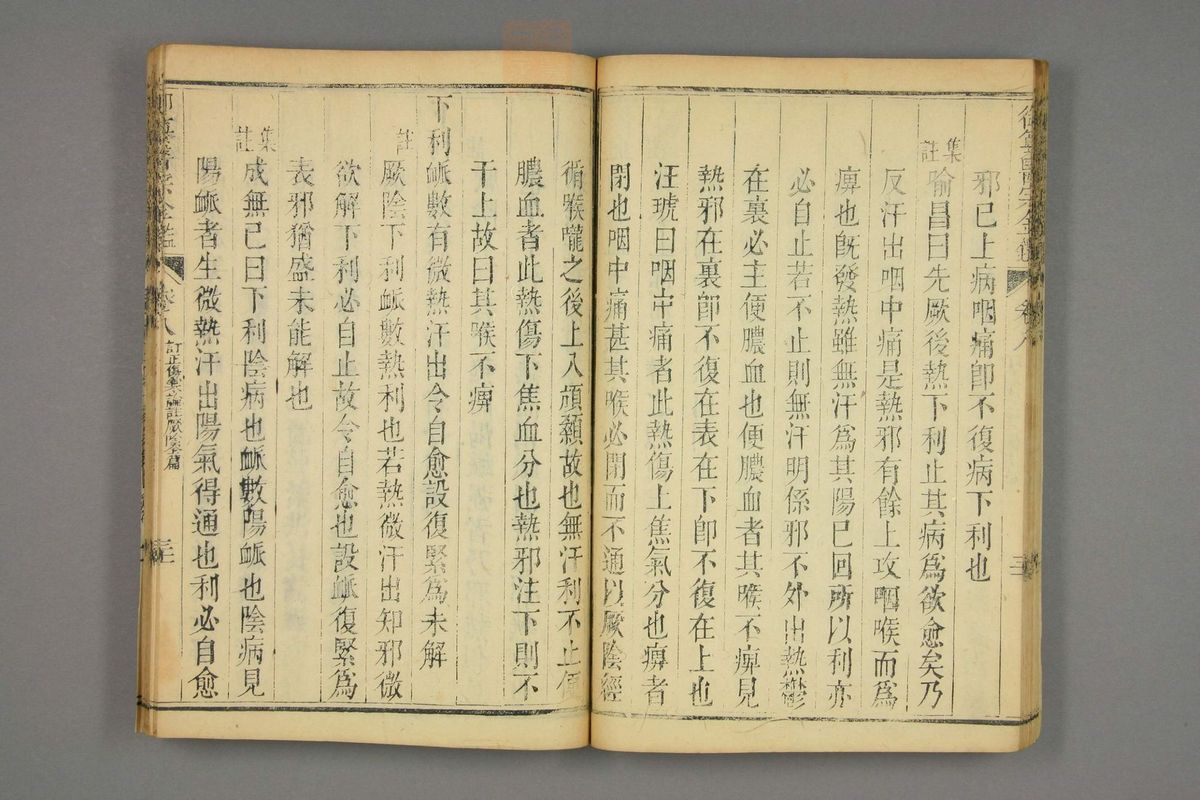 邪已上病咽痛卽不復病下利也
集註
喻昌曰先厥後熱下利止其病爲欲愈矣乃
反汗出咽中痛是熱邪有餘上攻咽喉而爲
痺也旣發熱雖無汗爲其陽已回所以利亦
必自止若不止則無汗明係邪不外出熱鬱
在裏必主便膿血也便膿血者其喉不痺見
熱邪在裏卽不復在表在下卽不復在上也
汪琥曰咽中痛者此熱傷上焦氣分也痺者
閉也咽中痛甚其喉必閉而不通以厥陰經
循喉嚨之後上入頏顙故也無汗利不止便
膿血者此熱傷下焦血分也熱邪注下則不
干上故曰其喉不痺
下利脈數有微熱汗出令自愈設復緊爲未解
註
厥陰下利脈數熱利也若熱微汗出知邪微
欲解下利必自止故令自愈也設脈復緊爲
表邪猶盛未能解也
集註
成無己曰下利陰病也脈數陽脈也陰病見
陽脈者生微熱汗出陽氣得通也利必自愈
卷八
訂正傷寒論註厥陰全篇